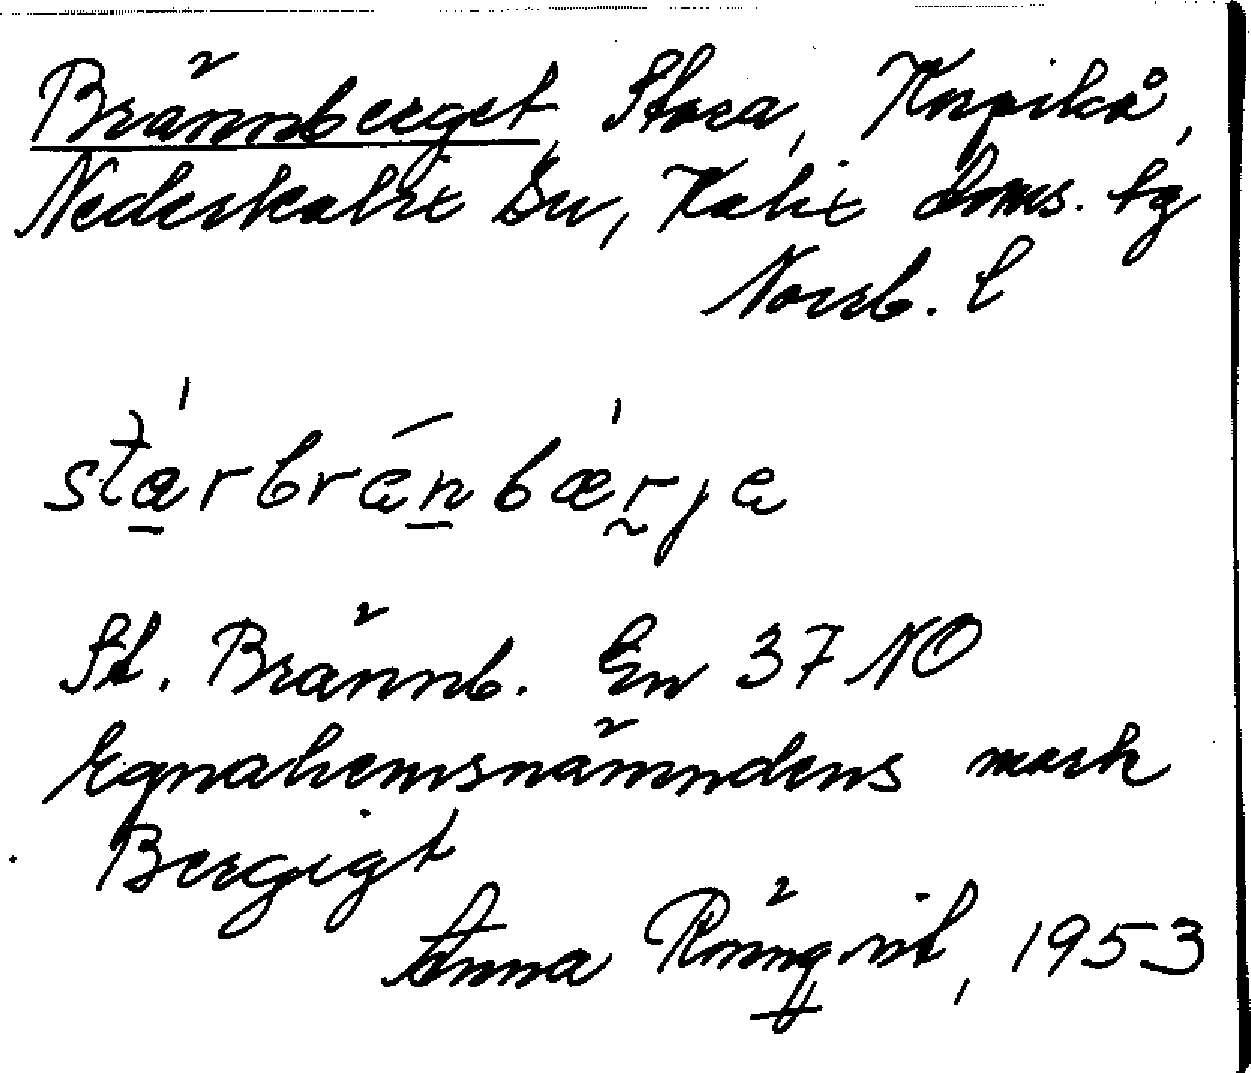 Brännberget, Stora, Korpikå,
Nederkalix sn, Kalix doms. tg
Norrb. l
stárbránbærja
St. Brännb. En 37 NO
Egnahemsnämndens mark
Bergigt
Anna Rönnqvist, 1953